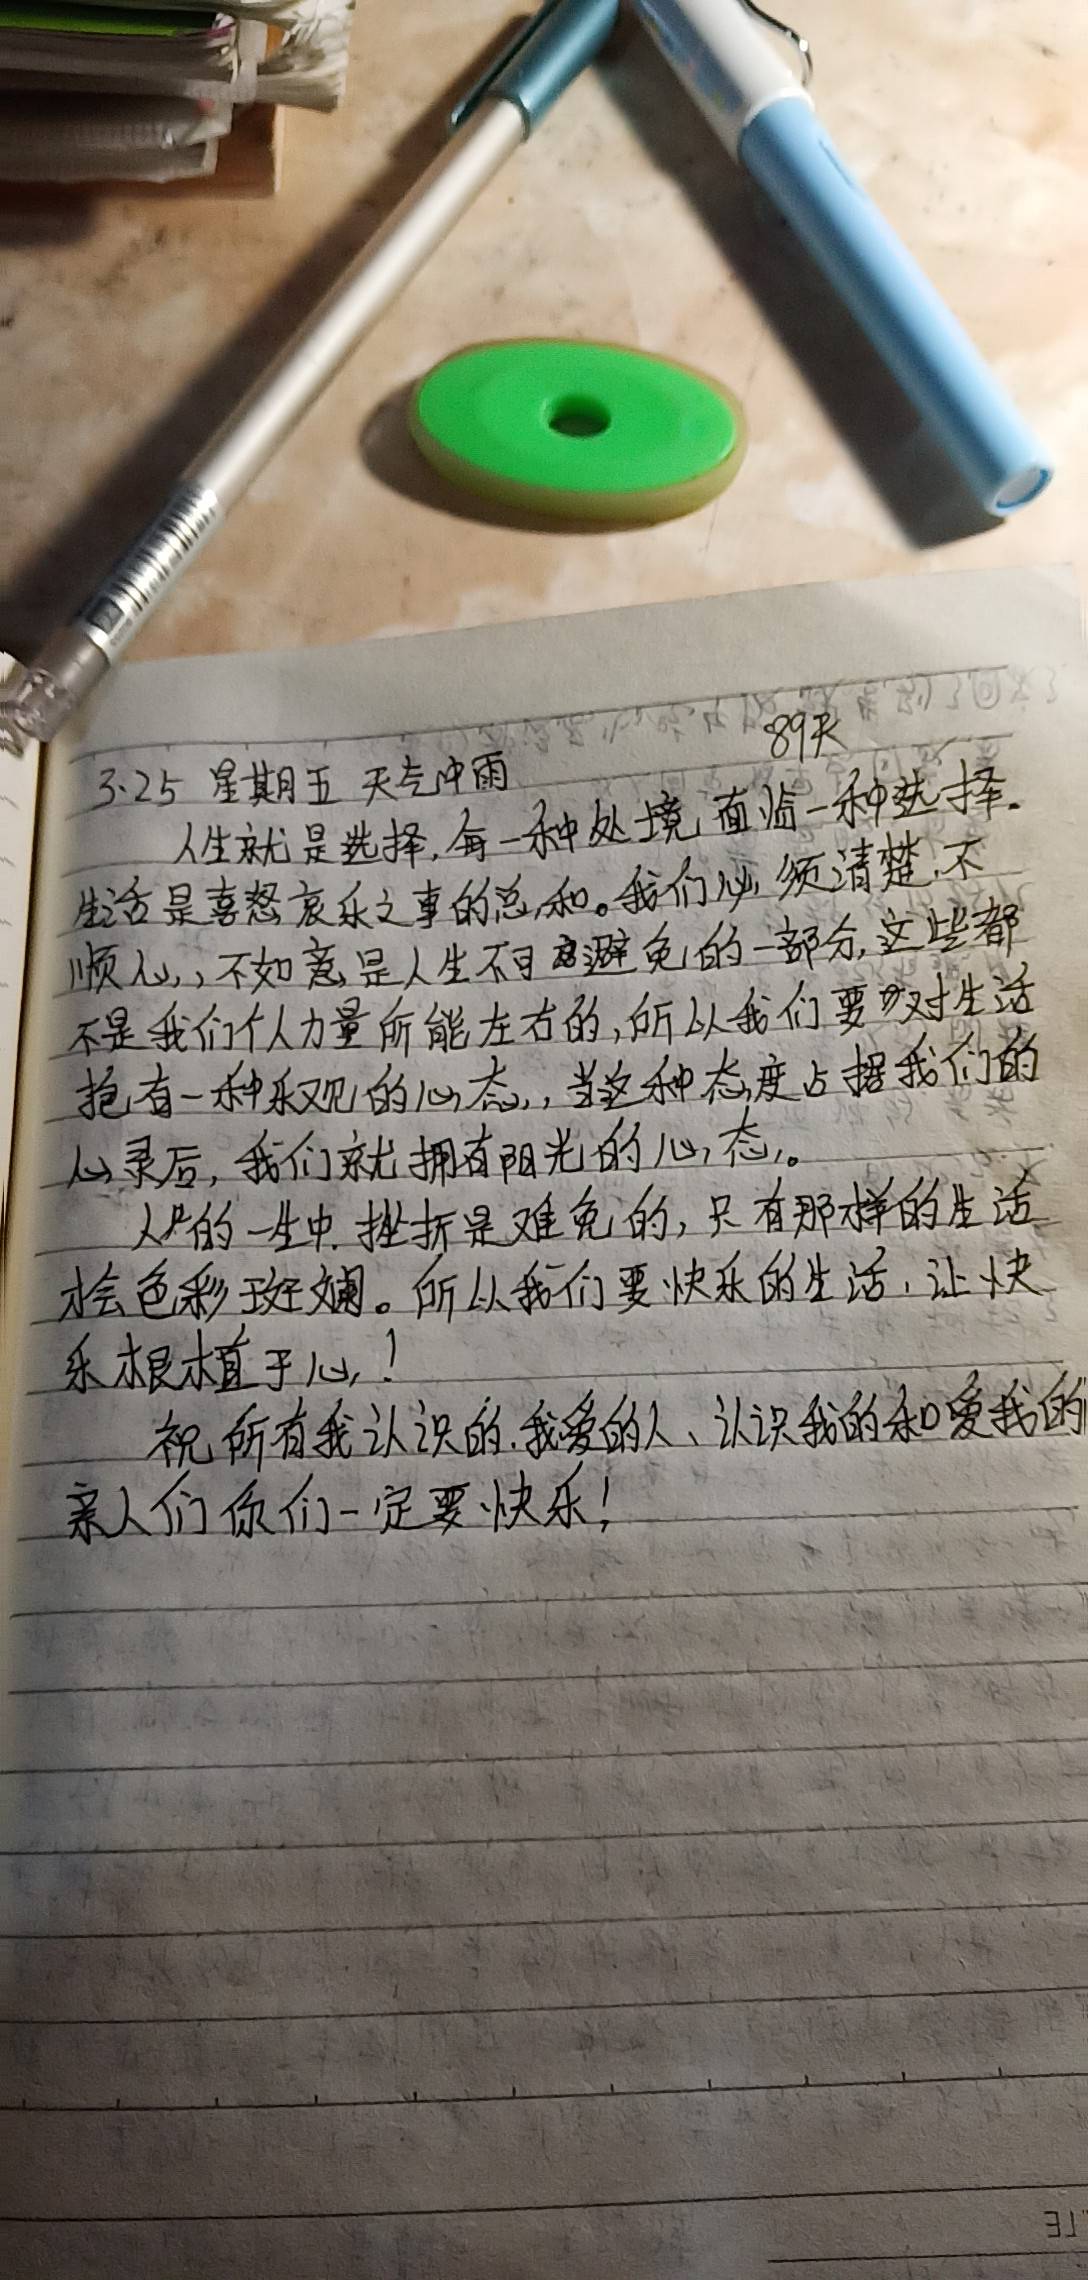 89天
3.25 星期五 天气中雨
人生就是选择,每一种处境面临一种选择。
生活是喜怒哀乐之事的总和。我们必须清楚,不
顺心,不如意是人生不可避免的一部分,这些都
不是我们个人力量所能左右的,所以我们要对生活
抱有一种乐观的心态,当这种态度占据我们的
心灵后,我们就拥有阳光的心态。
人的一生中.挫折是难免的,只有那样的生活
才会色彩斑斓。所以我们要快乐的生活,让快
乐根植于心!
祝所有我认识的.我爱的人、认识我的和爱我的
亲人们你们一定要快乐!